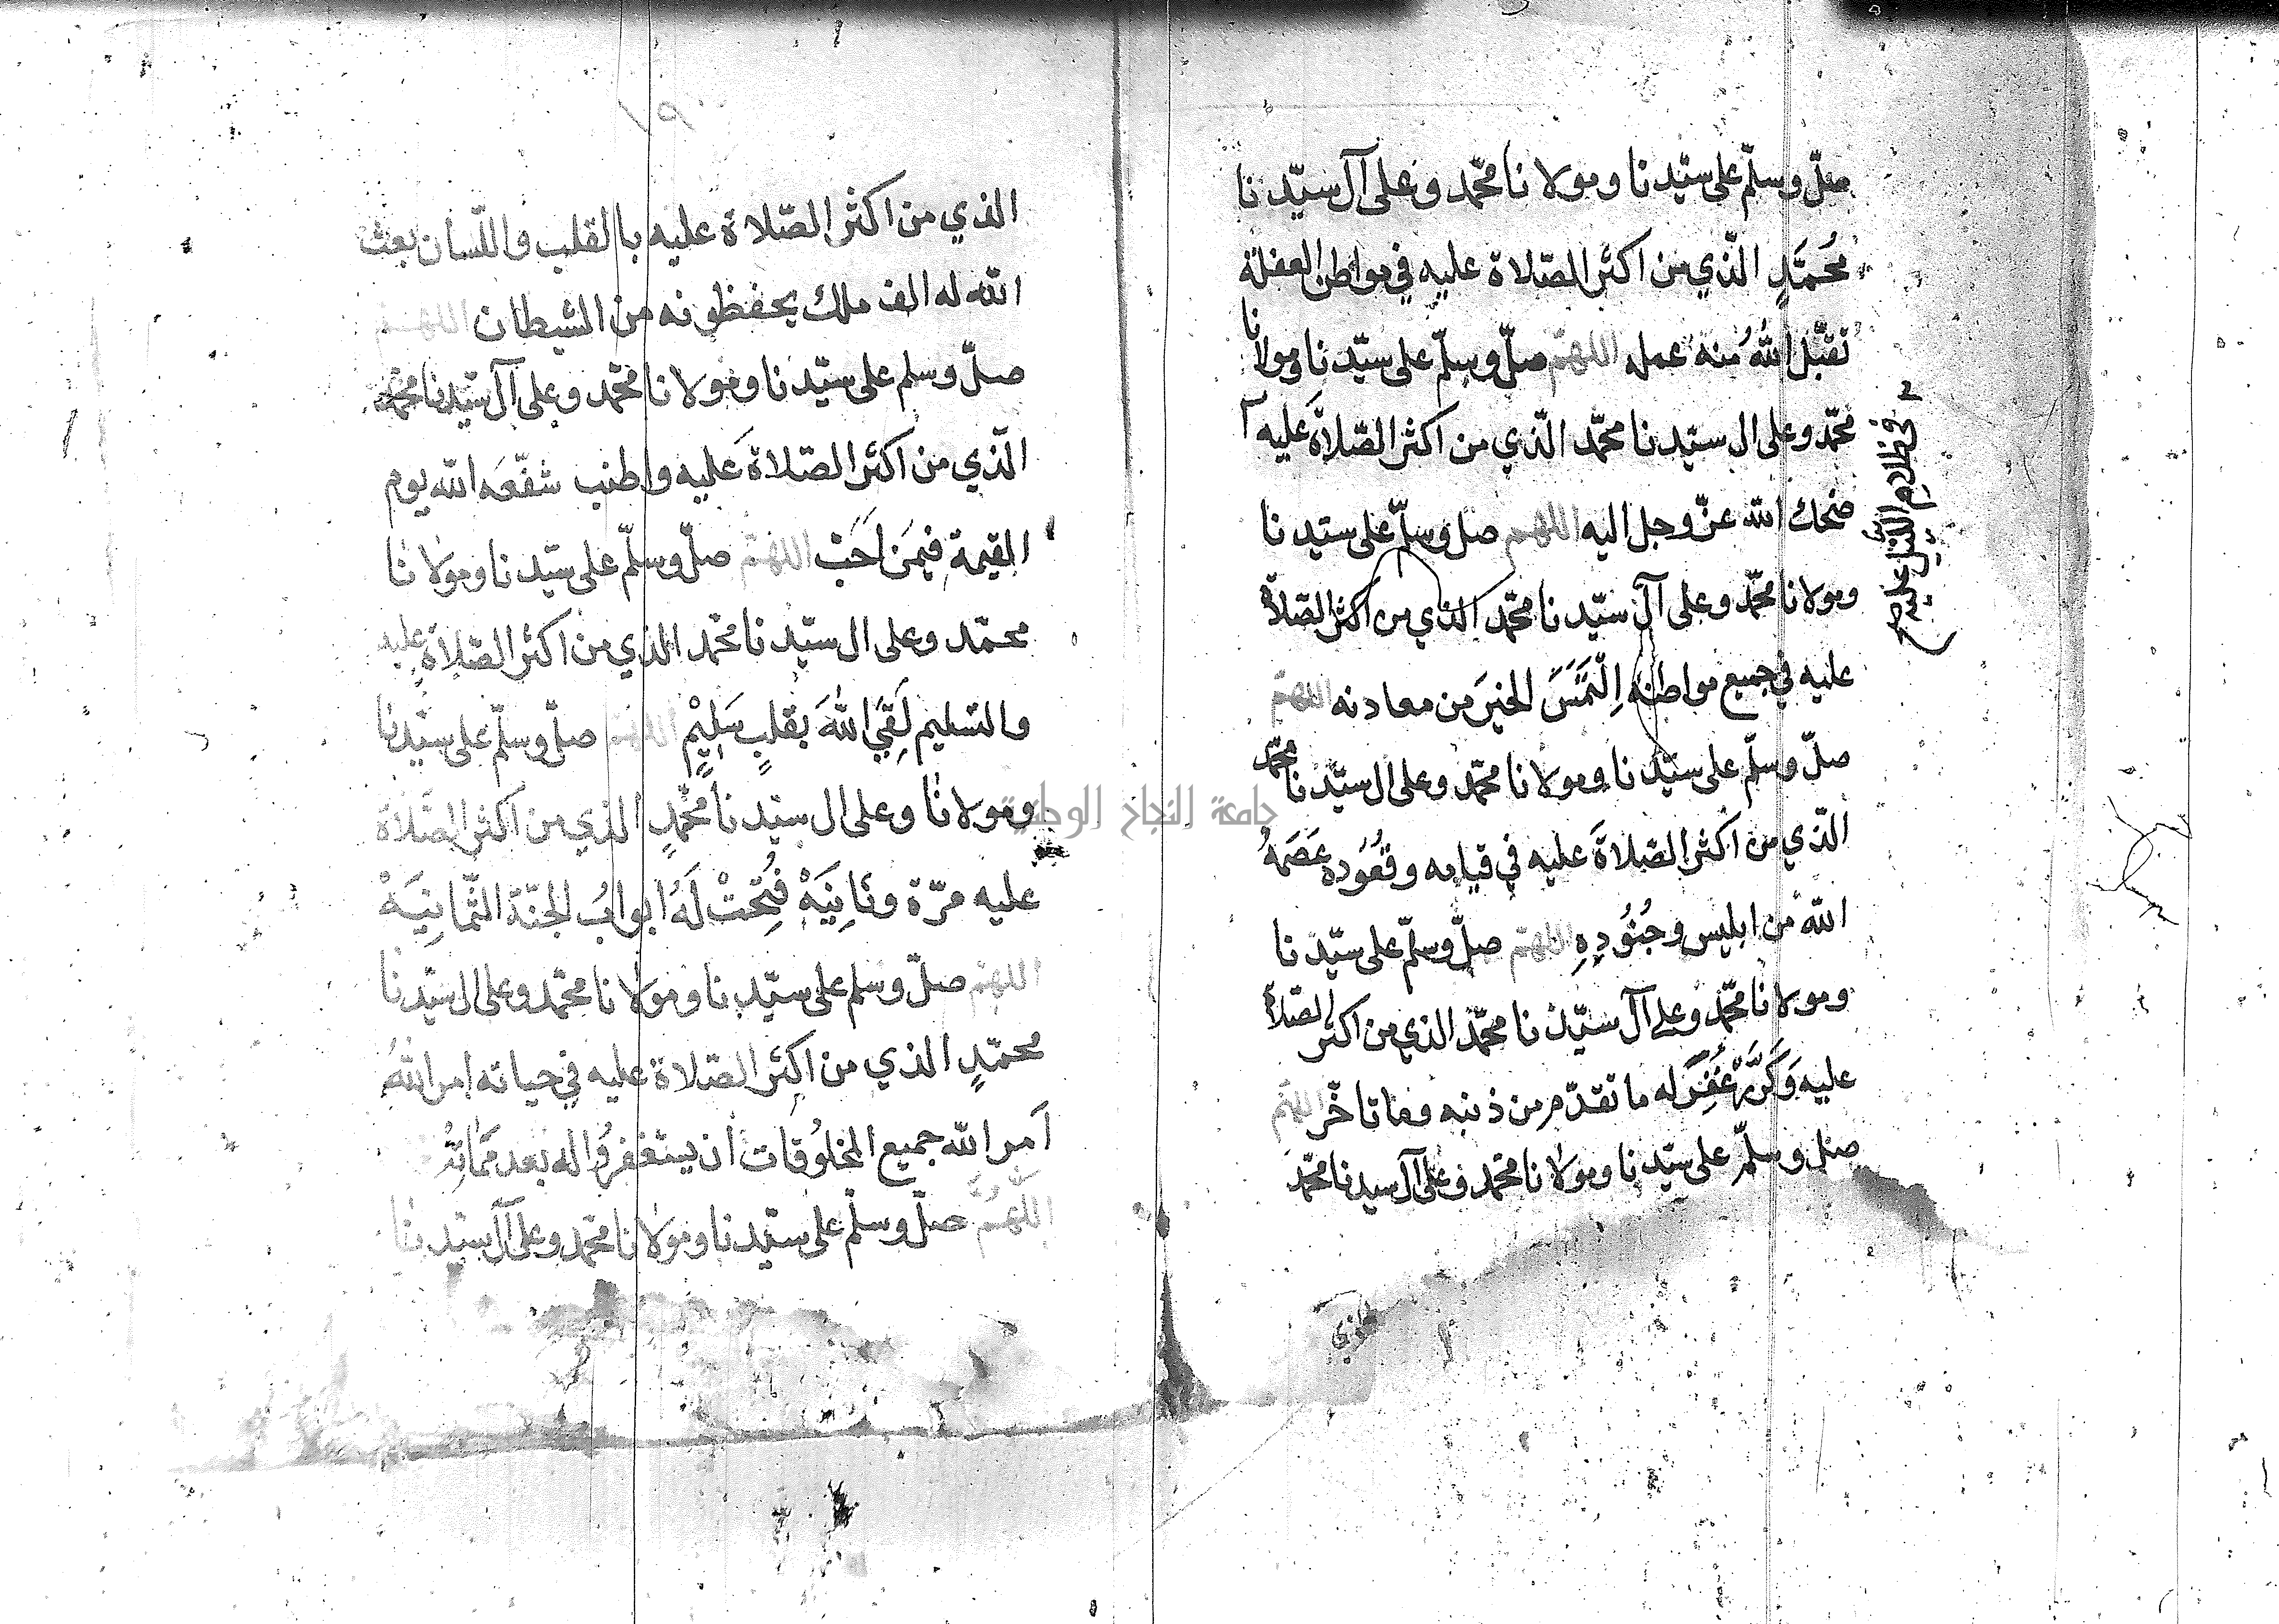 صلّ وسلّم على سيّدنا ومولانا محمّد وعلى آل سيّدنا
مُحمَّدٍ الّذي من اكثر الصّلاة عليه في مواطن الغفلة
تقبّل اللهُ منه عمله اللهمّ صلّ وسلّم على سيّدنا ومولانا
محمّد وعلى ال سيّدنا محمّد الّذي من اكثر الصّلاة عَليه
ضحك الله عزّ وجل اليه اللهم صل وسلّم على سيّدنا
ومولانا محمّد وعلى آل سيّدنا محمّد الذي من اكثر الصّلاة
عليه في جميع مواطنه اِلْتَمَسَ الخيرَ من معادنه اللهمّ
صلّ وسلّم على سيّدنا ومولانا محمّد وعلى ال سيّدنا محمّد
الّذي من اكثر الصّلاةَ عَليه في قيامه وقُعُوده عَصَمَهُ
الله من ابليس وجُنُودِهِ اللهمّ صلّ وسلّم على سيّدنا
ومولانا محمّد وعلى آل سيّدنا محمّد الذي من اكثر الصّلاة
عليه وَكَرَّرَ غُفِرَ له ما تقدّم من ذنبه وما تاخّر اللهمّ
صل وسلّم على سيّدنا ومولانا محمّد وعلى آل سيدنا محمّد
في ظلام اللّيل
الذي من اكثر الصّلاة عليه بالقلب واللّسان بعث
الله له الف ملك يحفظونه من الشيطان اللهم
صلّ وسلم على سيّدنا ومولانا محمّد وعلى آل سيّدنا محمّد
الّذي من اكثر الصّلاة عَليه واطنب شفّعَه الله يوم
القيمة فيمَن اَحَبّ اللهمّ صلّ وسلّم على سيّدنا ومولانا
محمّد وعلى ال سيّدنا محمّد الذي من اكثر الصّلاة عليه
والتسليم لَقِيَ اللهَ بقلبٍ سَلِيْمٍ اللهم صلّ وسلّم على سيّدنا
ومولانا وعلى ال سيّدنا محمّدٍ الذي من اكثر الصّلاة
عليه مرّة وثانِيَةْ فُتِحَتْ لَهُ ابوابُ الجنّة الثّمانِيَةْ
اللهمّ صلّ وسلم على سيّدنا ومولانا محمّد وعلى ال سيّدنا
محمّدٍ الذي من اكثر الصّلاة عليه في حياته امر اللهُ
اَمر الله جميع المخلوُقات اَن يستغفروُا له بعد مَمَاتِهْ
اللّهُمّ صلّ وسلّم على سيّدنا ومولانا محمّد وعلى آل سيّدنا
جامعة النجاح الوطنية